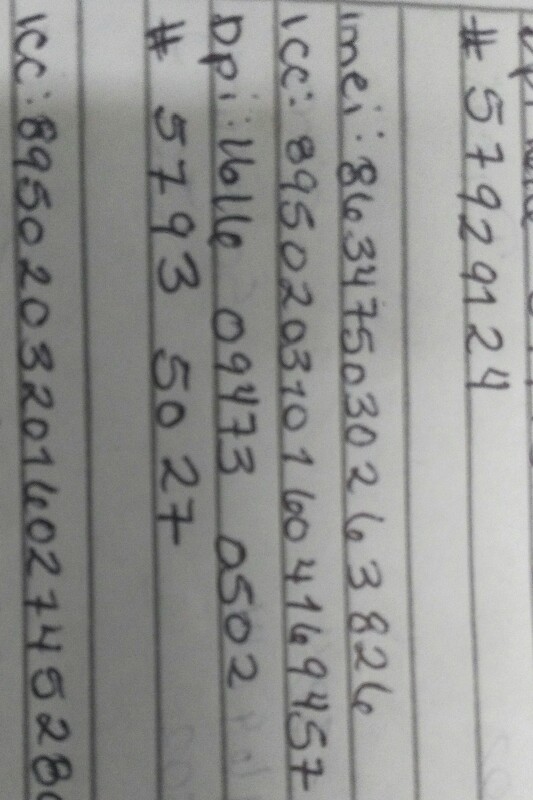 # 57929124
Imei: 863475030263826
ICC: 8950203101604169457
Dpi: 1616 09473 0502
# 5793 5027
ICC: 895020320160274528